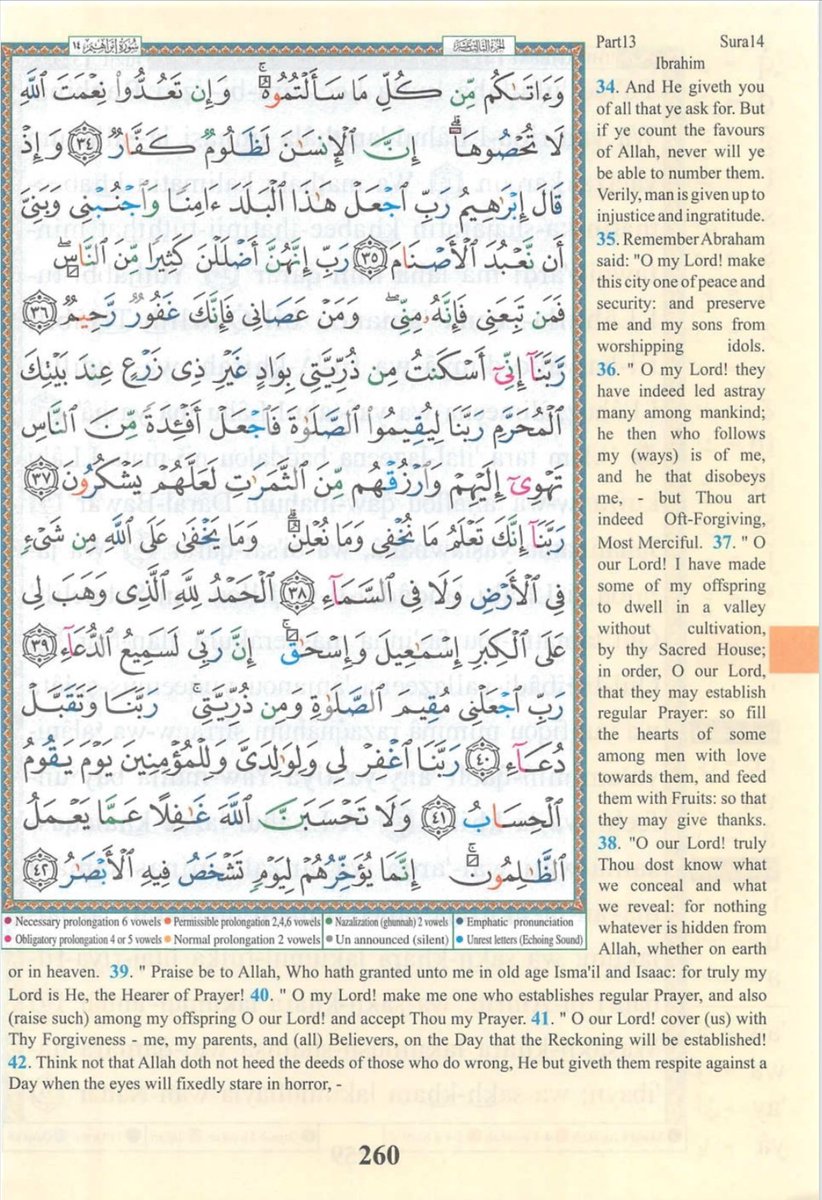 سُورَةُ إِبْرَاهِيمَ ١٤
الجُزْءُ الثَّالِثَ عَشَرَ
وَءَاتَىٰكُم مِّن كُلِّ مَا سَأَلْتُمُوهُ ۚ وَإِن تَعُدُّوا۟ نِعْمَتَ ٱللَّهِ
لَا تُحْصُوهَآ ۗ إِنَّ ٱلْإِنسَـٰنَ لَظَلُومٌ كَفَّارٌ ﴿٣٤﴾ وَإِذْ
قَالَ إِبْرَٰهِيمُ رَبِّ ٱجْعَلْ هَـٰذَا ٱلْبَلَدَ ءَامِنًا وَٱجْنُبْنِى وَبَنِىَّ
أَن نَّعْبُدَ ٱلْأَصْنَامَ ﴿٣٥﴾ رَبِّ إِنَّهُنَّ أَضْلَلْنَ كَثِيرًا مِّنَ ٱلنَّاسِ ۖ
فَمَن تَبِعَنِى فَإِنَّهُۥ مِنِّى ۖ وَمَنْ عَصَانِى فَإِنَّكَ غَفُورٌ رَّحِيمٌ ﴿٣٦﴾
رَّبَّنَآ إِنِّىٓ أَسْكَنتُ مِن ذُرِّيَّتِى بِوَادٍ غَيْرِ ذِى زَرْعٍ عِندَ بَيْتِكَ
ٱلْمُحَرَّمِ رَبَّنَا لِيُقِيمُوا۟ ٱلصَّلَوٰةَ فَٱجْعَلْ أَفْـِٔدَةً مِّنَ ٱلنَّاسِ
تَهْوِىٓ إِلَيْهِمْ وَٱرْزُقْهُم مِّنَ ٱلثَّمَرَٰتِ لَعَلَّهُمْ يَشْكُرُونَ ﴿٣٧﴾
رَبَّنَآ إِنَّكَ تَعْلَمُ مَا نُخْفِى وَمَا نُعْلِنُ ۗ وَمَا يَخْفَىٰ عَلَى ٱللَّهِ مِن شَىْءٍ
فِى ٱلْأَرْضِ وَلَا فِى ٱلسَّمَآءِ ﴿٣٨﴾ ٱلْحَمْدُ لِلَّهِ ٱلَّذِى وَهَبَ لِى
عَلَى ٱلْكِبَرِ إِسْمَـٰعِيلَ وَإِسْحَـٰقَ ۚ إِنَّ رَبِّى لَسَمِيعُ ٱلدُّعَآءِ ﴿٣٩﴾
رَبِّ ٱجْعَلْنِى مُقِيمَ ٱلصَّلَوٰةِ وَمِن ذُرِّيَّتِى ۚ رَبَّنَا وَتَقَبَّلْ
دُعَآءِ ﴿٤٠﴾ رَبَّنَا ٱغْفِرْ لِى وَلِوَٰلِدَىَّ وَلِلْمُؤْمِنِينَ يَوْمَ يَقُومُ
ٱلْحِسَابُ ﴿٤١﴾ وَلَا تَحْسَبَنَّ ٱللَّهَ غَـٰفِلًا عَمَّا يَعْمَلُ
ٱلظَّـٰلِمُونَ ۚ إِنَّمَا يُؤَخِّرُهُمْ لِيَوْمٍ تَشْخَصُ فِيهِ ٱلْأَبْصَـٰرُ ﴿٤٢﴾
● Necessary prolongation 6 vowels ● Permissible prolongation 2,4,6 vowels ● Nazalization (ghunnah) 2 vowels ● Emphatic pronunciation
● Obligatory prolongation 4 or 5 vowels ● Normal prolongation 2 vowels ● Un announced (silent) ● Unrest letters (Echoing Sound)
Part13 Sura14
Ibrahim
34. And He giveth you
of all that ye ask for. But
if ye count the favours
of Allah, never will ye
be able to number them.
Verily, man is given up to
injustice and ingratitude.
35. Remember Abraham
said: "O my Lord! make
this city one of peace and
security: and preserve
me and my sons from
worshipping idols.
36. " O my Lord! they
have indeed led astray
many among mankind;
he then who follows
my (ways) is of me,
and he that disobeys
me, - but Thou art
indeed Oft-Forgiving,
Most Merciful. 37. " O
our Lord! I have made
some of my offspring
to dwell in a valley
without cultivation,
by thy Sacred House;
in order, O our Lord,
that they may establish
regular Prayer: so fill
the hearts of some
among men with love
towards them, and feed
them with Fruits: so that
they may give thanks.
38. "O our Lord! truly
Thou dost know what
we conceal and what
we reveal: for nothing
whatever is hidden from
Allah, whether on earth
or in heaven. 39. " Praise be to Allah, Who hath granted unto me in old age Isma'il and Isaac: for truly my
Lord is He, the Hearer of Prayer! 40. " O my Lord! make me one who establishes regular Prayer, and also
(raise such) among my offspring O our Lord! and accept Thou my Prayer. 41. " O our Lord! cover (us) with
Thy Forgiveness - me, my parents, and (all) Believers, on the Day that the Reckoning will be established!
42. Think not that Allah doth not heed the deeds of those who do wrong, He but giveth them respite against a
Day when the eyes will fixedly stare in horror, -
260